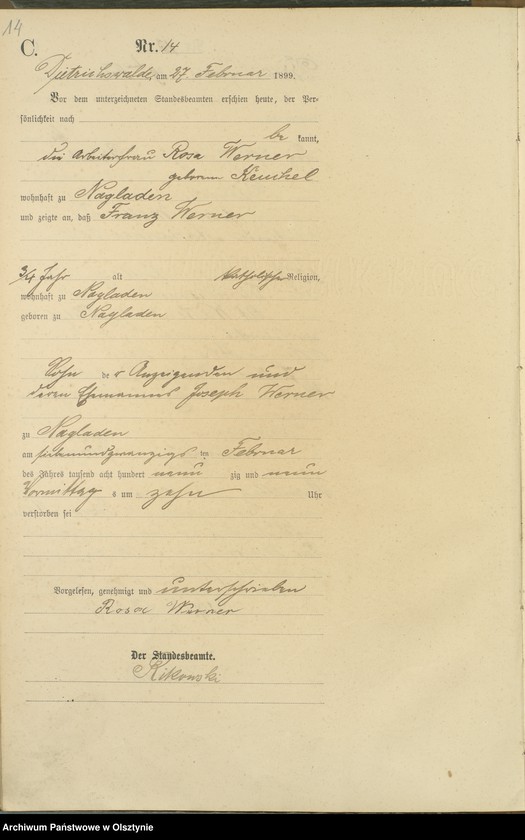 14
C.
Nr. 14
Dietrichswalde, am 27. Februar 1899.
Vor dem unterzeichneten Standesbeamten erschien heute, der Per-
sönlichkeit nach
be kannt,
die Arbeiterfrau Rosa Werner
geborene
wohnhaft zu Nagladen
und zeigte an, daß Franz Werner
3/4 Jahr alt katholischer Religion,
wohnhaft zu Nagladen
geboren zu Nagladen
Sohn de r Anzeigenden und
deren Ehemannes Joseph Werner
zu Nagladen
am siebenundzwanzigsten Februar
des Jahres tausend acht hundert neun zig und neun
Vormittag s um zehn Uhr
verstorben sei
Vorgelesen, genehmigt und unterschrieben
Rosa Werner
Der Standesbeamte.
Rikowski
Archiwum Państwowe w Olsztynie